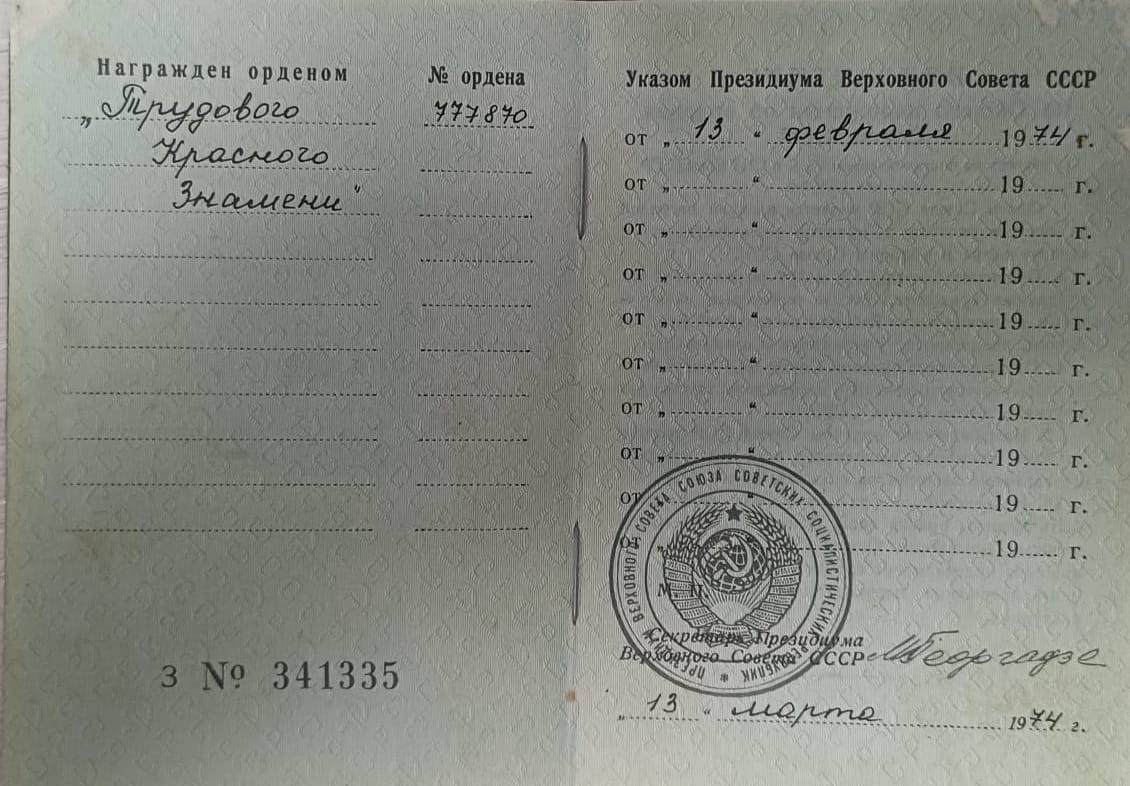 Награжден орденом
„Трудового
Красного
Знамени"
№ ордена
777870
З № 341335
Указом Президиума Верховного Совета СССР
от „ 13 “ февраля 1974 г.
от „ “ 19 г.
от „ “ 19 г.
от „ “ 19 г.
от „ “ 19 г.
от „ “ 19 г.
от „ “ 19 г.
от „ “ 19 г.
от 19 г.
от „ 19 г.
М. П.
ПРЕЗИДИУМ ВЕРХОВНОГО СОВЕТА СОЮЗА СОВЕТСКИХ СОЦИАЛИСТИЧЕСКИХ РЕСПУБЛИК *
Секретарь Президиума
Верховного Совета СССР МГеоргадзе
„ 13 “ марта 1974 г.